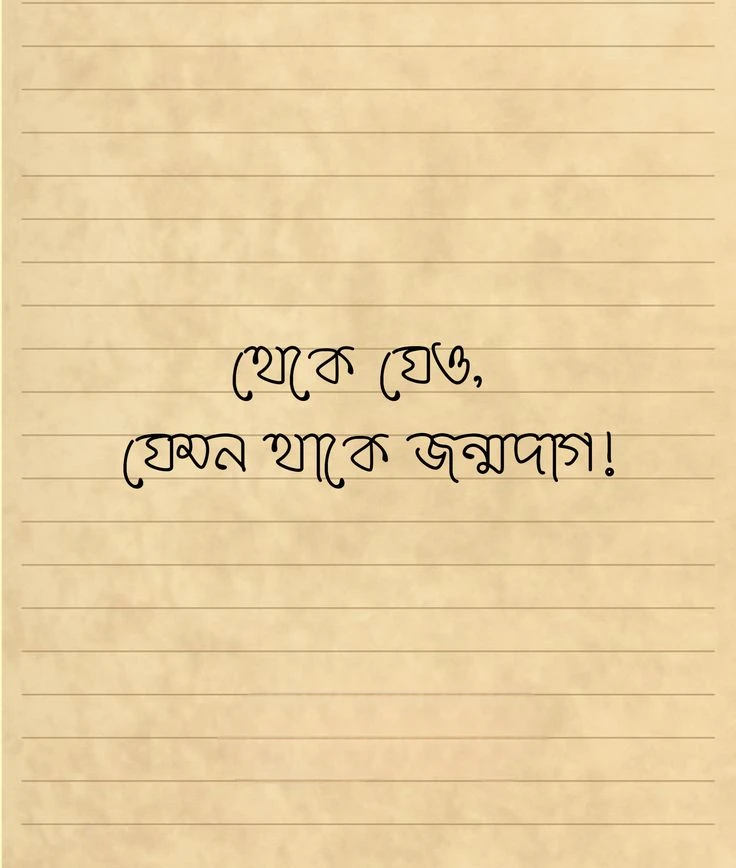 থেকে যেও,
যেমন থাকে জন্মদাগ!